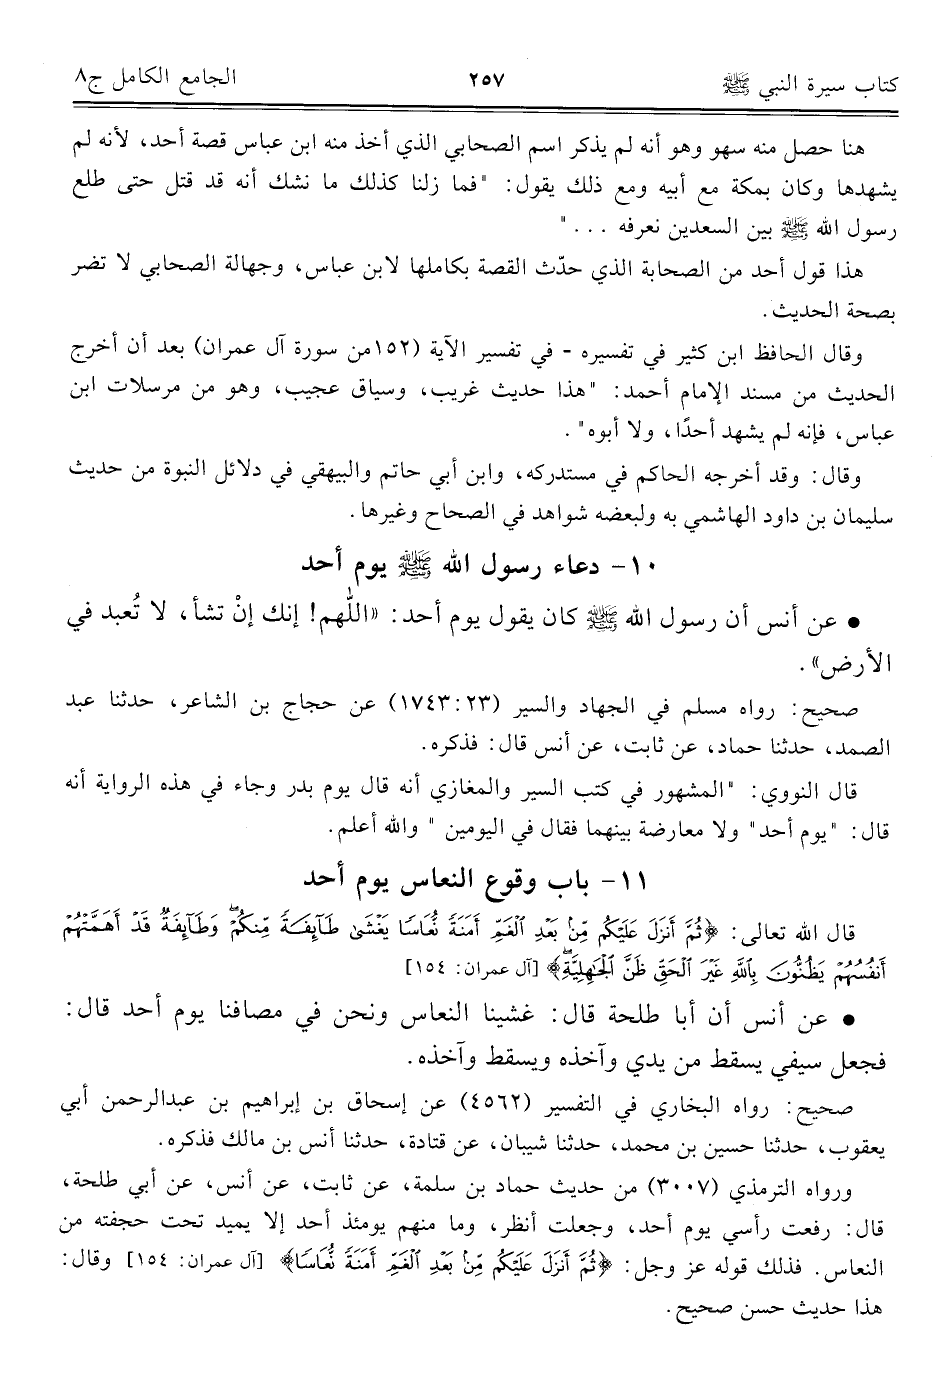 كتاب سيرة النبي ﷺ ٢٥٧ الجامع الكامل ج٨
هنا حصل منه سهو وهو أنه لم يذكر اسم الصحابي الذي أخذ منه ابن عباس قصة أحد، لأنه لم
يشهدها وكان بمكة مع أبيه ومع ذلك يقول: "فما زلنا كذلك ما نشك أنه قد قتل حتى طلع
رسول الله ﷺ بين السعدين نعرفه ... "
هذا قول أحد من الصحابة الذي حدّث القصة بكاملها لابن عباس، وجهالة الصحابي لا تضر
بصحة الحديث.
وقال الحافظ ابن كثير في تفسيره - في تفسير الآية (١٥٢من سورة آل عمران) بعد أن أخرج
الحديث من مسند الإمام أحمد: "هذا حديث غريب، وسياق عجيب، وهو من مرسلات ابن
عباس، فإنه لم يشهد أحدًا، ولا أبوه" .
وقال: وقد أخرجه الحاكم في مستدركه، وابن أبي حاتم والبيهقي في دلائل النبوة من حديث
سليمان بن داود الهاشمي به ولبعضه شواهد في الصحاح وغيرها.
١٠- دعاء رسول الله ﷺ يوم أحد
• عن أنس أن رسول الله ﷺ كان يقول يوم أحد: «اللّٰهم! إنك إنْ تشأ، لا تُعبد في
الأرض» .
صحيح: رواه مسلم في الجهاد والسير (١٧٤٣:٢٣) عن حجاج بن الشاعر، حدثنا عبد
الصمد، حدثنا حماد، عن ثابت، عن أنس قال: فذكره.
قال النووي: "المشهور في كتب السير والمغازي أنه قال يوم بدر وجاء في هذه الرواية أنه
قال: "يوم أحد" ولا معارضة بينهما فقال في اليومين " والله أعلم.
١١- باب وقوع النعاس يوم أحد
قال الله تعالى: ﴿ثُمَّ أَنزَلَ عَلَيْكُم مِّنۢ بَعْدِ ٱلْغَمِّ أَمَنَةً نُّعَاسًا يَغْشَىٰ طَآئِفَةً مِّنكُمْ ۖ وَطَآئِفَةٌ قَدْ أَهَمَّتْهُمْ
أَنفُسُهُمْ يَظُنُّونَ بِٱللَّهِ غَيْرَ ٱلْحَقِّ ظَنَّ ٱلْجَٰهِلِيَّةِ ۖ﴾ [آل عمران: ١٥٤]
• عن أنس أن أبا طلحة قال: غشينا النعاس ونحن في مصافنا يوم أحد قال:
فجعل سيفي يسقط من يدي وآخذه ويسقط وآخذه.
صحيح: رواه البخاري في التفسير (٤٥٦٢) عن إسحاق بن إبراهيم بن عبدالرحمن أبي
يعقوب، حدثنا حسين بن محمد، حدثنا شيبان، عن قتادة، حدثنا أنس بن مالك فذكره.
ورواه الترمذي (٣٠٠٧) من حديث حماد بن سلمة، عن ثابت، عن أنس، عن أبي طلحة،
قال: رفعت رأسي يوم أحد، وجعلت أنظر، وما منهم يومئذ أحد إلا يميد تحت حجفته من
النعاس. فذلك قوله عز وجل: ﴿ثُمَّ أَنزَلَ عَلَيْكُم مِّنۢ بَعْدِ ٱلْغَمِّ أَمَنَةً نُّعَاسًا﴾ [آل عمران: ١٥٤] وقال:
هذا حديث حسن صحيح.